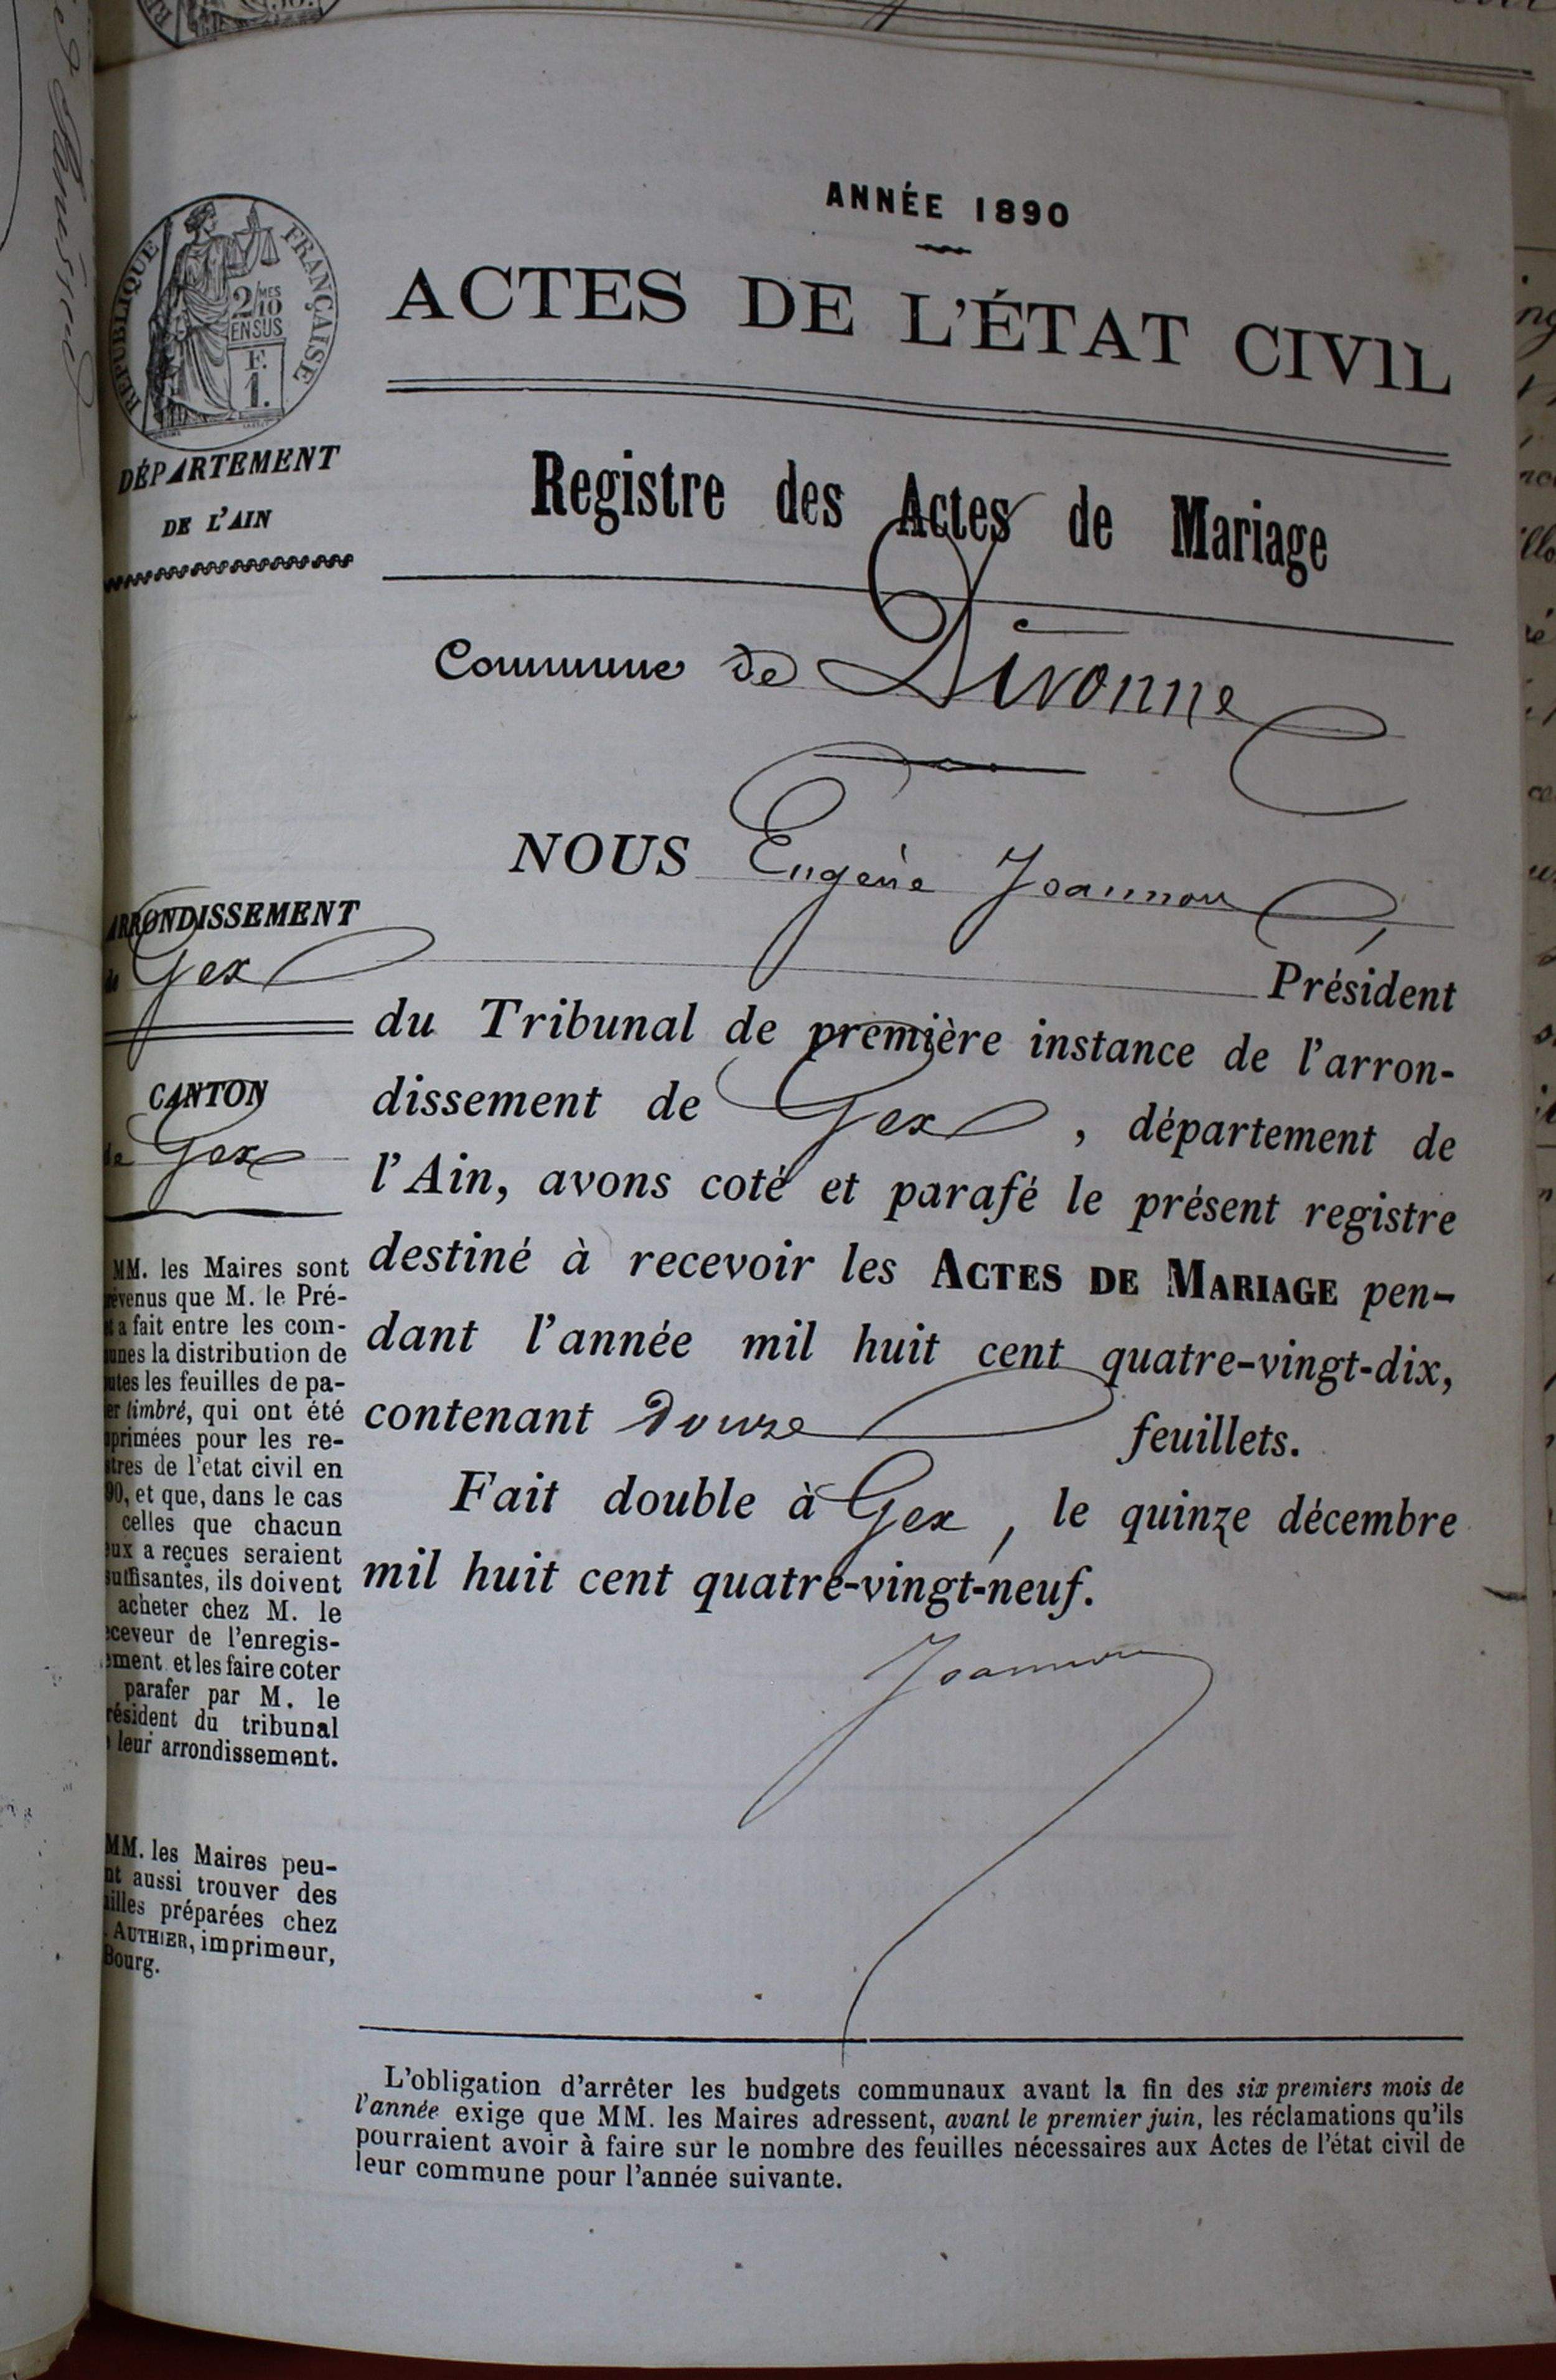 ANNÉE 1890
ACTES DE L'ÉTAT CIVIL
RÉPUBLIQUE FRANÇAISE
2/10 MES
EN SUS
F.
1.
DÉPARTEMENT
DE L'AIN
Registre des Actes de Mariage
Commune de Divonne
NOUS Eugène Joannon
ARRONDISSEMENT
de Gex
Président
du Tribunal de première instance de l'arron-
dissement de Gex, département de
l'Ain, avons coté et parafé le présent registre
destiné à recevoir les ACTES DE MARIAGE pen-
dant l'année mil huit cent quatre-vingt-dix,
contenant douze feuillets.
Fait double à Gex, le quinze décembre
mil huit cent quatre-vingt-neuf.
Joannon
CANTON
de Gex
MM. les Maires sont
évenus que M. le Pré-
t a fait entre les com-
unes la distribution de
utes les feuilles de pa-
er timbré, qui ont été
primées pour les re-
stres de l'état civil en
90, et que, dans le cas
celles que chacun
eux a reçues seraient
suffisantes, ils doivent
acheter chez M. le
eceveur de l'enregis-
ement et les faire coter
parafer par M. le
résident du tribunal
leur arrondissement.
MM. les Maires peu-
nt aussi trouver des
illes préparées chez
AUTHIER, imprimeur,
Bourg.
L'obligation d'arrêter les budgets communaux avant la fin des six premiers mois de
l'année exige que MM. les Maires adressent, avant le premier juin, les réclamations qu'ils
pourraient avoir à faire sur le nombre des feuilles nécessaires aux Actes de l'état civil de
leur commune pour l'année suivante.